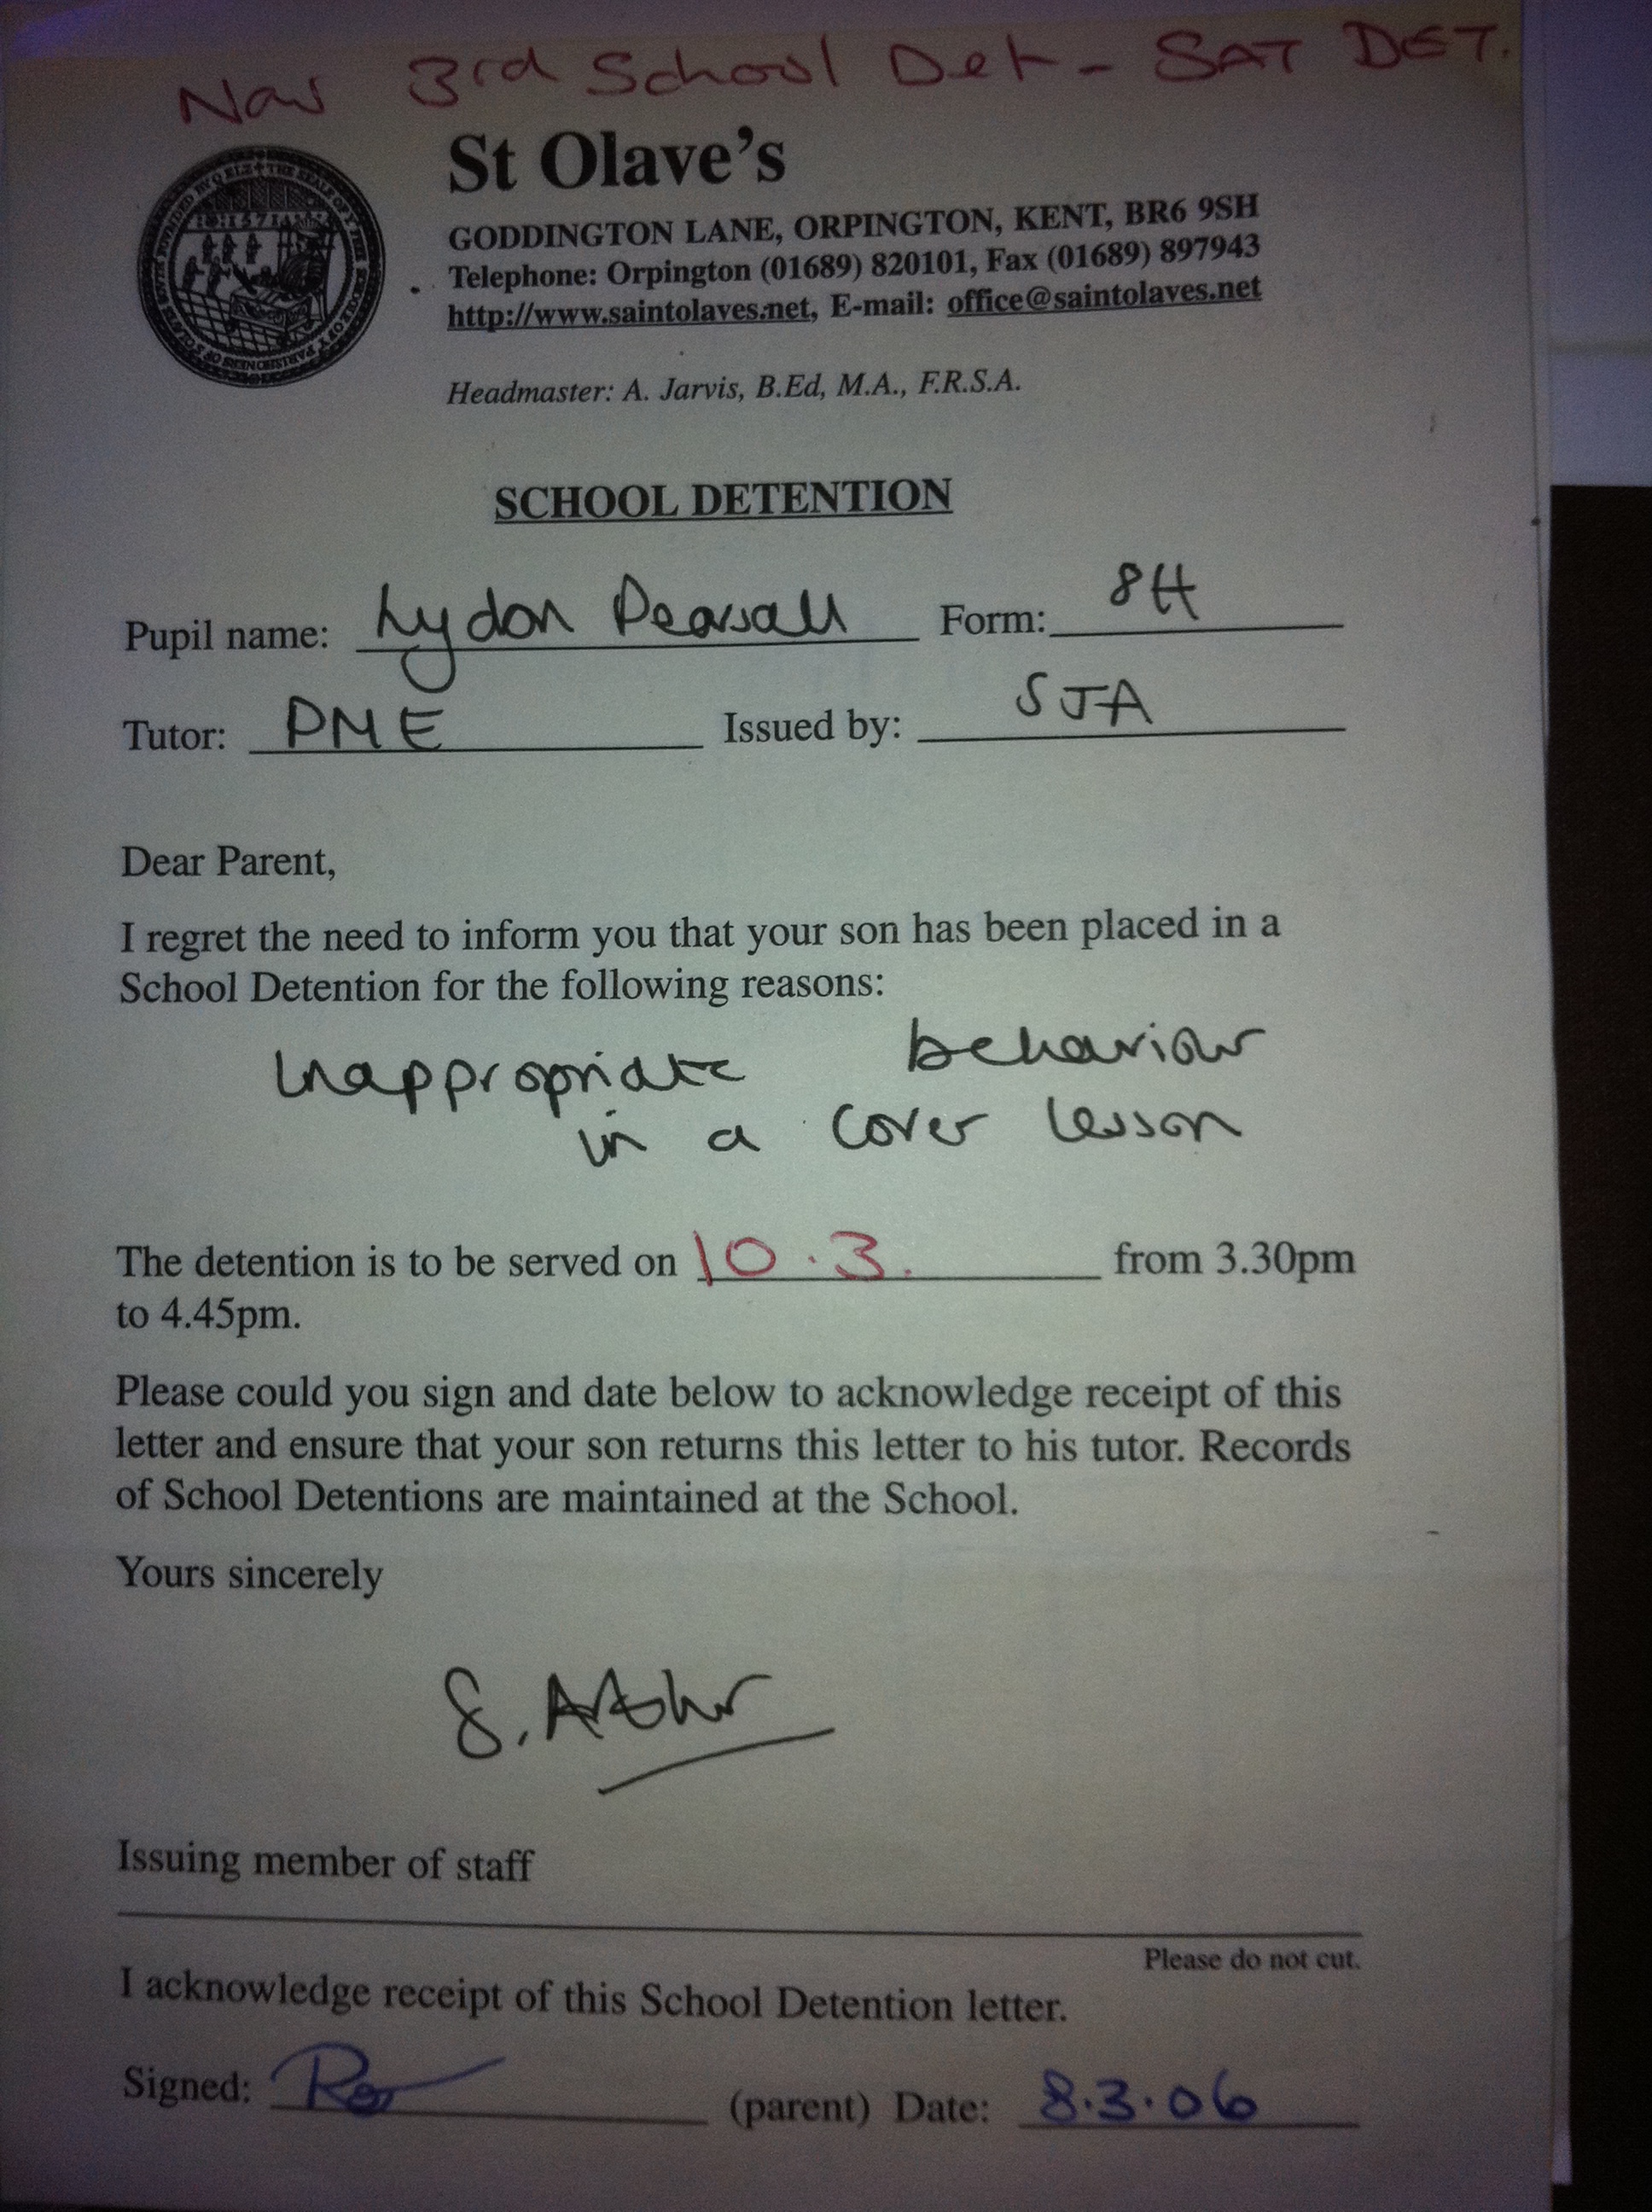 Now 3rd School Det - SAT DET.
St Olave's
GODDINGTON LANE, ORPINGTON, KENT, BR6 9SH
Telephone: Orpington (01689) 820101, Fax (01689) 897943
http://www.saintolaves.net, E-mail: office@saintolaves.net
Headmaster: A. Jarvis, B.Ed, M.A., F.R.S.A.
SCHOOL DETENTION
Pupil name: Lydon Pearsall Form: 8H
Tutor: PME Issued by: SJA
Dear Parent,
I regret the need to inform you that your son has been placed in a
School Detention for the following reasons:
Inappropriate behaviour
in a cover lesson
The detention is to be served on 10.3. from 3.30pm
to 4.45pm.
Please could you sign and date below to acknowledge receipt of this
letter and ensure that your son returns this letter to his tutor. Records
of School Detentions are maintained at the School.
Yours sincerely
S. Arthur
Issuing member of staff
Please do not cut.
I acknowledge receipt of this School Detention letter.
Signed: (parent) Date: 8.3.06